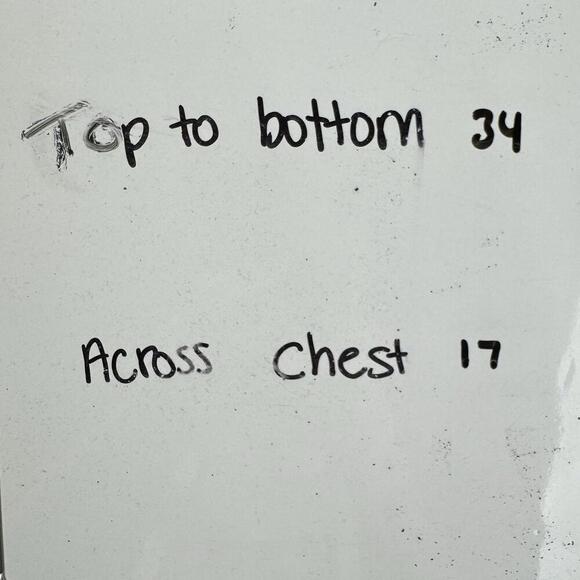 Top to bottom 34
Across Chest 17